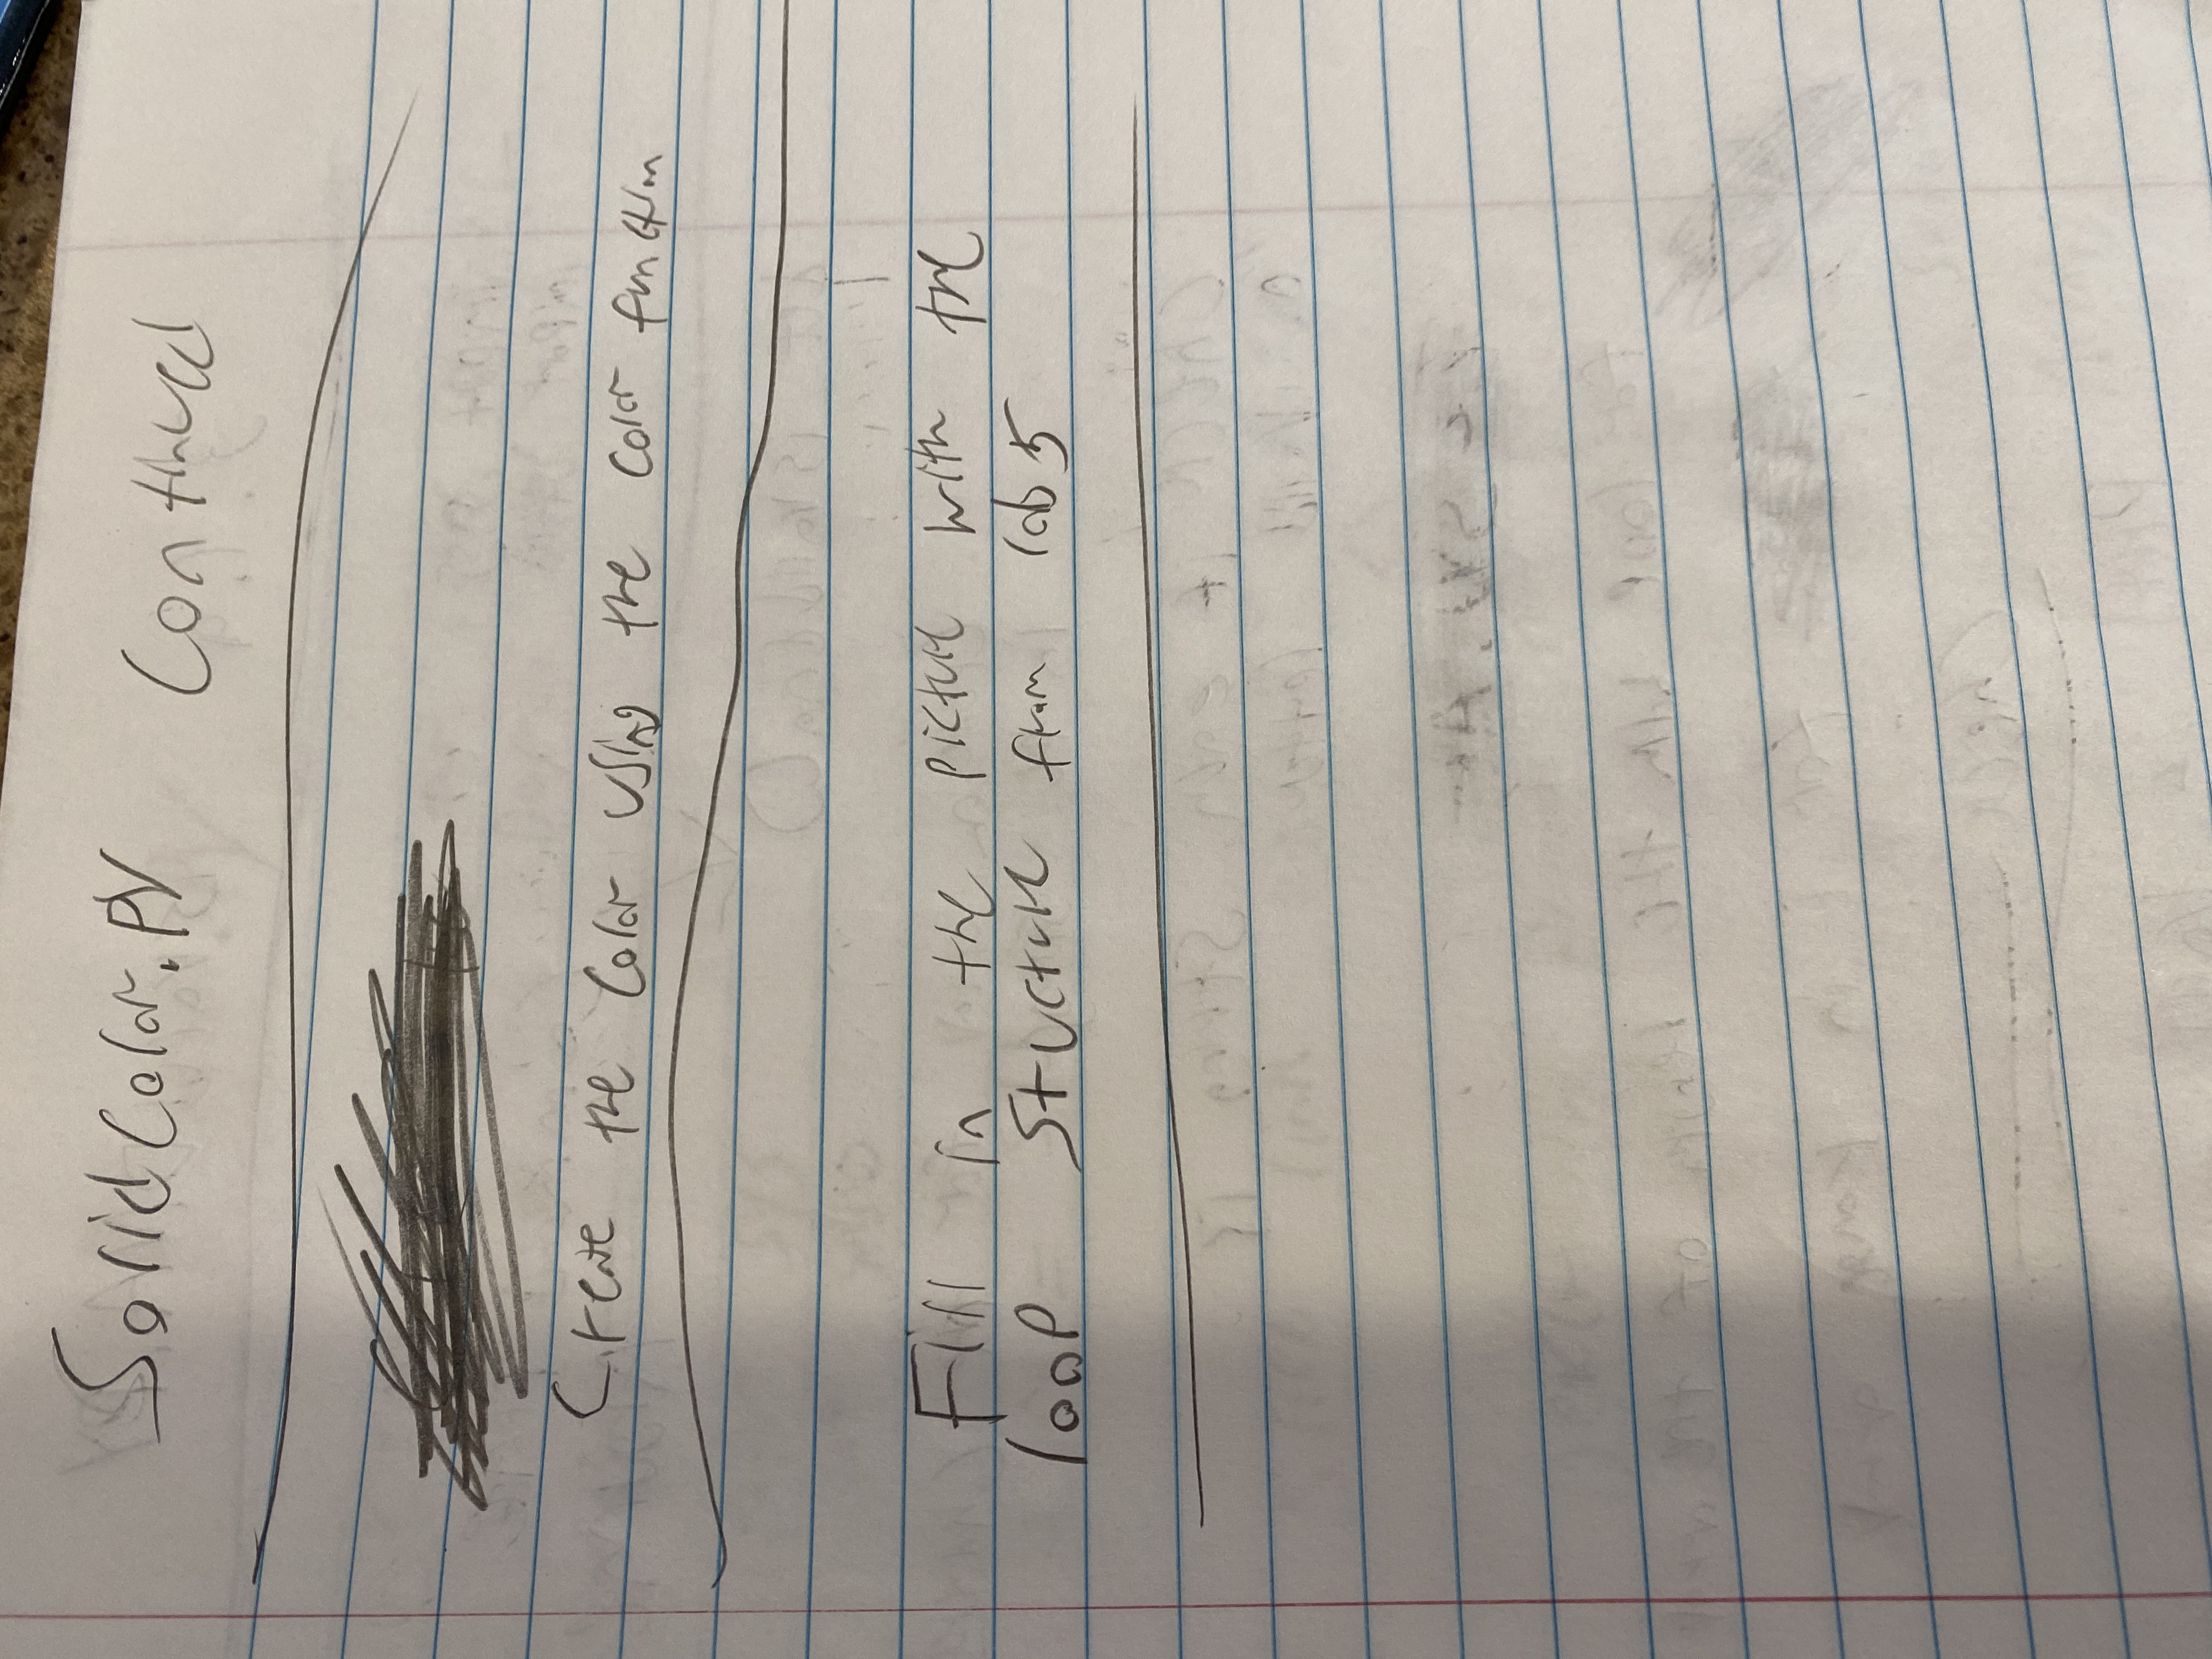 SolidColor.py Continued
Create the color using the color function
Fill in the picture with the
loop structure from lab 5